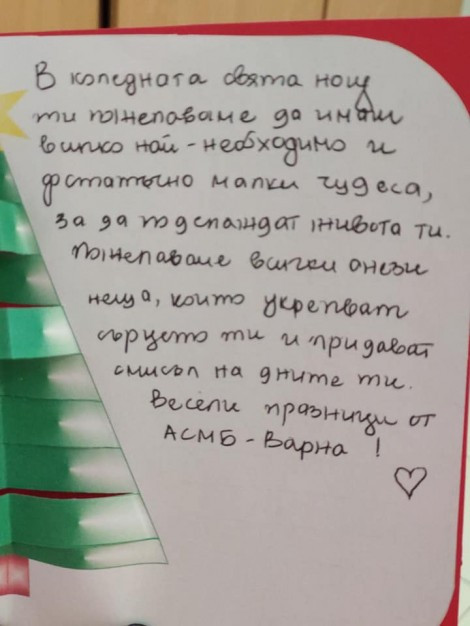 В коледната свята нощ
ти пожелаваме да имаш
всичко най-необходимо и
достатъчно малки чудеса,
за да подслаждат живота ти.
Пожелаваме всички онези
неща, които укрепват
сърцето ти и придават
смисъл на дните ти.
Весели празници от
АСМБ-Варна!